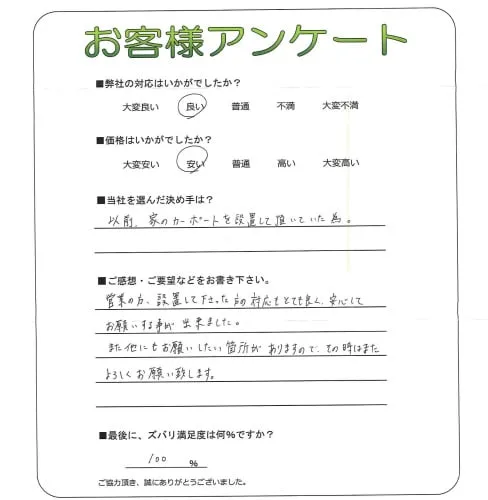 お客様アンケート
■弊社の対応はいかがでしたか？
大変良い 良い 普通 不満 大変不満
■価格はいかがでしたか？
大変安い 安い 普通 高い 大変高い
■当社を選んだ決め手は？
以前、家のカーポートを設置して頂いていた為。
■ご感想・ご要望などをお書き下さい。
営業の方、設置して下さった方の対応もとても良く、安心して
お願いする事が出来ました。
また他にもお願いしたい箇所がありますので、その時はまた
よろしくお願い致します。
■最後に、ズバリ満足度は何％ですか？
100 ％
ご協力頂き、誠にありがとうございました。